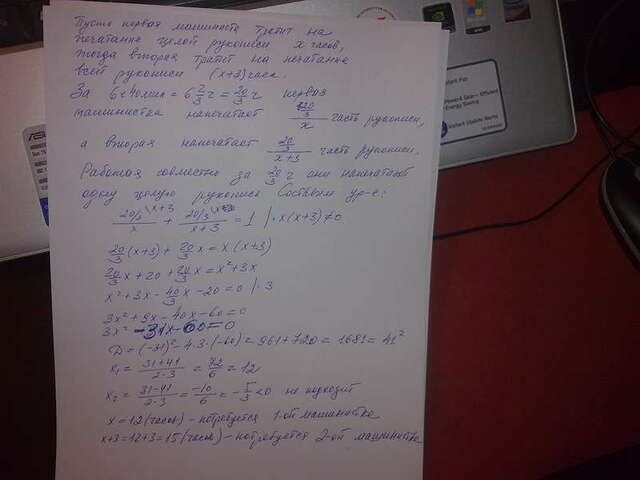 Пусть первая машинистка тратит на
печатание целой рукописи x часов,
тогда вторая тратит на печатание
всей рукописи (x+3) часа.
За 6ч 40мин = 6 2/3 ч = 20/3 ч первая
машинистка напечатает (20/3)/x часть рукописи,
а вторая напечатает (20/3)/(x+3) часть рукописи.
Работая совместно за 20/3 ч они напечатают
одну целую рукопись Составим ур-е:
(20/3)/x \x+3 + (20/3)/(x+3) = 1 | · x(x+3)≠0
20/3 (x+3) + 20/3 x = x(x+3)
20/3 x + 20 + 20/3 x = x² + 3x
x² + 3x - 40/3 x - 20 = 0 | · 3
3x² + 9x - 40x - 60 = 0
3x² - 31x - 60 = 0
D = (-31)² - 4·3·(-60) = 961 + 720 = 1681 = 41²
x₁ = (31+41)/(2·3) = 72/6 = 12
x₂ = (31-41)/(2·3) = -10/6 = -5/3 <0 не подходит
x = 12 (часов) - потребуется 1-ой машинистке
x+3 = 12+3 = 15 (часов) - потребуется 2-ой машинистке
ASUS